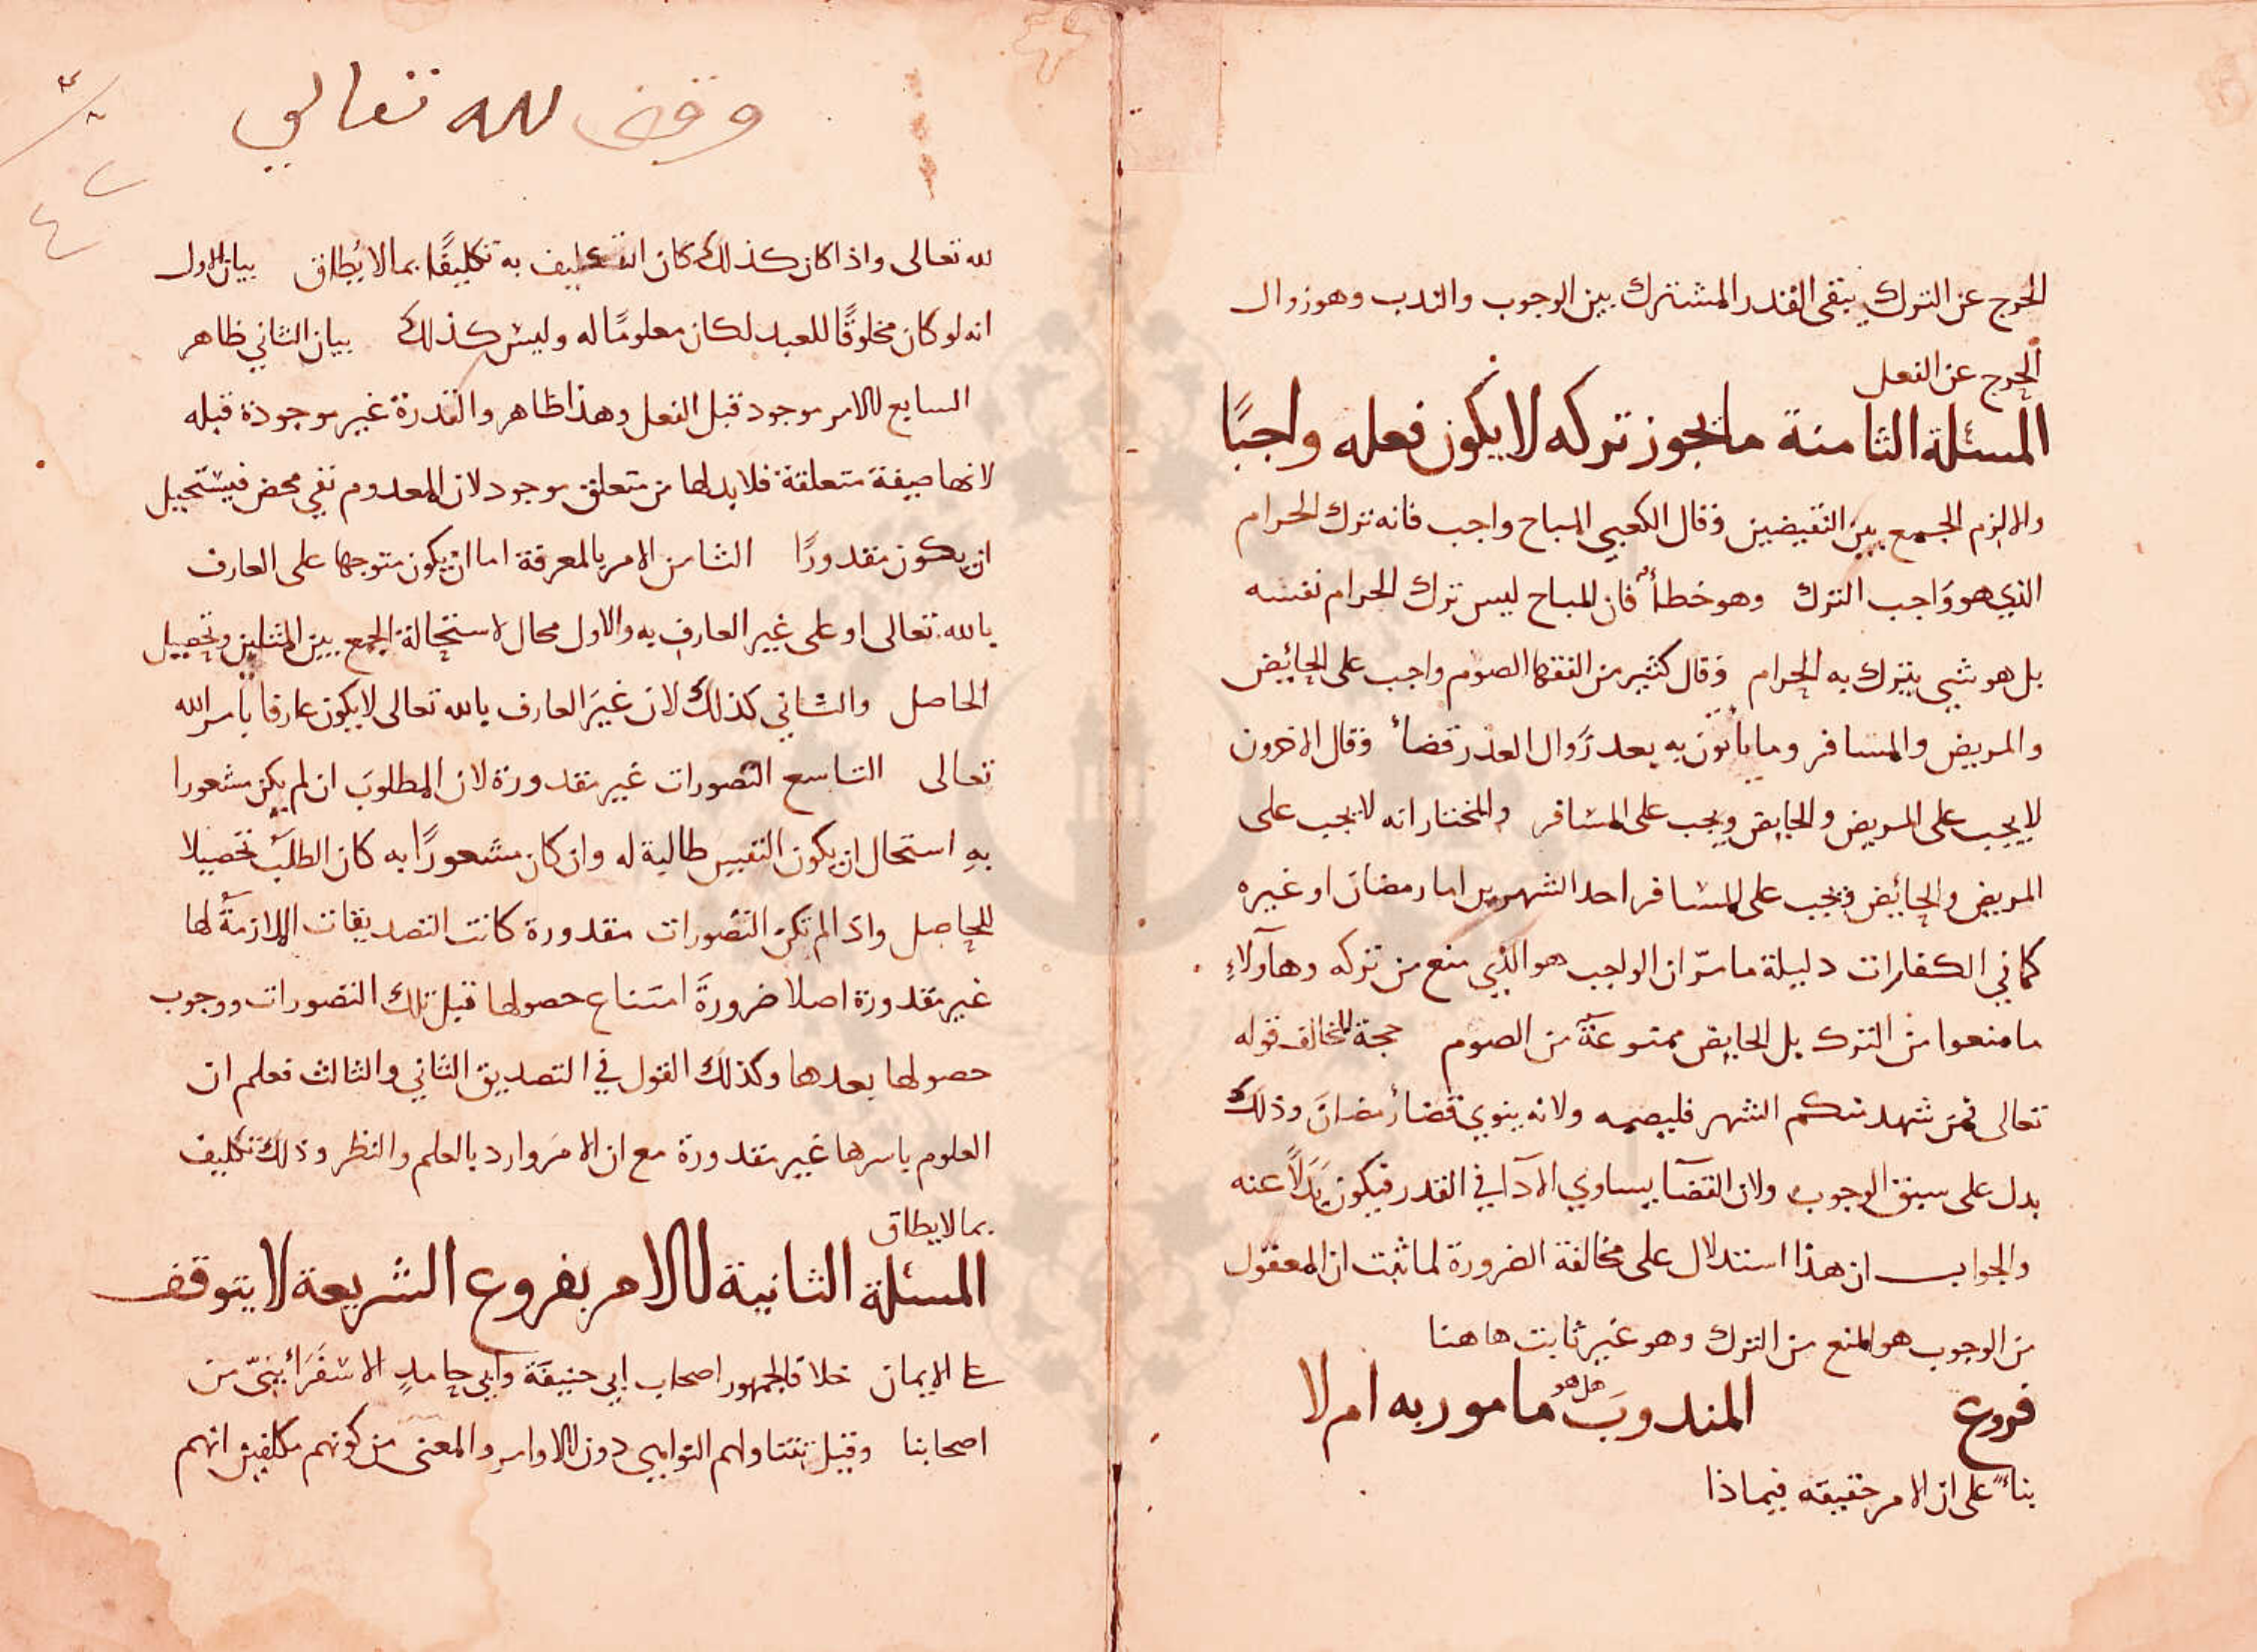 الحرج عن الترك يبقى القدر المشترك بين الوجوب والندب وهو زوال
الحرج عن الفعل
المسئلة الثامنة ما يجوز تركه لا يكون فعله واجبًا
والا لزم الجمع بين النقيضين وقال الكعبي المباح واجب فانه ترك الحرام
الذي هو واجب الترك وهو خطأ فان المباح ليس ترك الحرام نفسه
بل هو شيء يترك به الحرام وقال كثير من الفقها الصوم واجب على الحائض
والمريض والمسافر وما يأتون به بعد زوال العذر قضأ وقال الاخرون
لا يجب على المريض والحايض ويجب على المسافر والمختار انه لا يجب على
المريض والحائض ويجب على المسافر احد الشهرين اما رمضان او غيره
كما في الكفارات دليله ما مرّ ان الواجب هو الذي منع من تركه وهآولاءِ
ما منعوا من الترك بل الحايض ممنوعة من الصوم حجة المخالف قوله
تعالى فمن شهد منكم الشهر فليصمه ولانه ينوي قضأ رمضان وذلك
يدل على سبق الوجوب ولان القضآ يساوي الادآ في القدر فيكون بَدَلًا عنه
والجواب ان هذا استدلال على مخالفة الضرورة لما ثبت ان المعقول
من الوجوب هو المنع من الترك وهو غير ثابت هاهنا
فروع المندوبَ هل هو مامور به ام لا
بنأً على ان الامر حقيقه فيماذا
وقف لله تعالى
لله تعالى واذا كان كذلك كان التكليف به تكليفًا بما لا يُطاق بيان الاول
انه لو كان مخلوقًا للعبد لكان معلومًا له وليس كذلك بيان الثاني ظاهر
السابع الامر موجود قبل الفعل وهذا ظاهر والقدرة غير موجودة قبله
لانها صفة متعلقة فلا بد لها من متعلق موجود لان المعدوم نفي محض فيستحيل
ان يكون مقدورًا الثامن الامر بالمعرفة اما ان يكون متوجها على العارف
بالله تعالى او على غير العارف به والاول محال لاستحالة الجمع بين المثلين وتحصيل
الحاصل والثاني كذلك لان غيرَ العارف بالله تعالى لا يكون عارفا بامر الله
تعالى التاسع التصورات غير مقدورة لان المطلوبَ ان لم يكن مشعورا
بهِ استحال ان يكون النفس طالبة له وان كان مشعورًا به كان الطلب تحصيلا
للحاصل واذا لم تكن التصورات مقدورة كانت التصديقات اللازمةُ لها
غير مقدورة اصلا ضرورةَ امتناع حصولها قبل تلك التصورات ووجوب
حصولها بعدها وكذلك القول في التصديق الثاني والثالث فعلم ان
العلوم باسرها غير مقدورة مع ان الامرَ وارد بالعلم والنظر وذلك تكليف
بما لا يطاق
المسئلة الثانية الامر بفروع الشريعة لا يتوقف
على الايمان خلافا لجمهور اصحاب ابي حنيفة وابي حامدٍ الاسفَرَائينيّ من
اصحابنا وقيل تتناولهم النواهي دون الاوامر والمعنى من كونهم مكلفين انهم